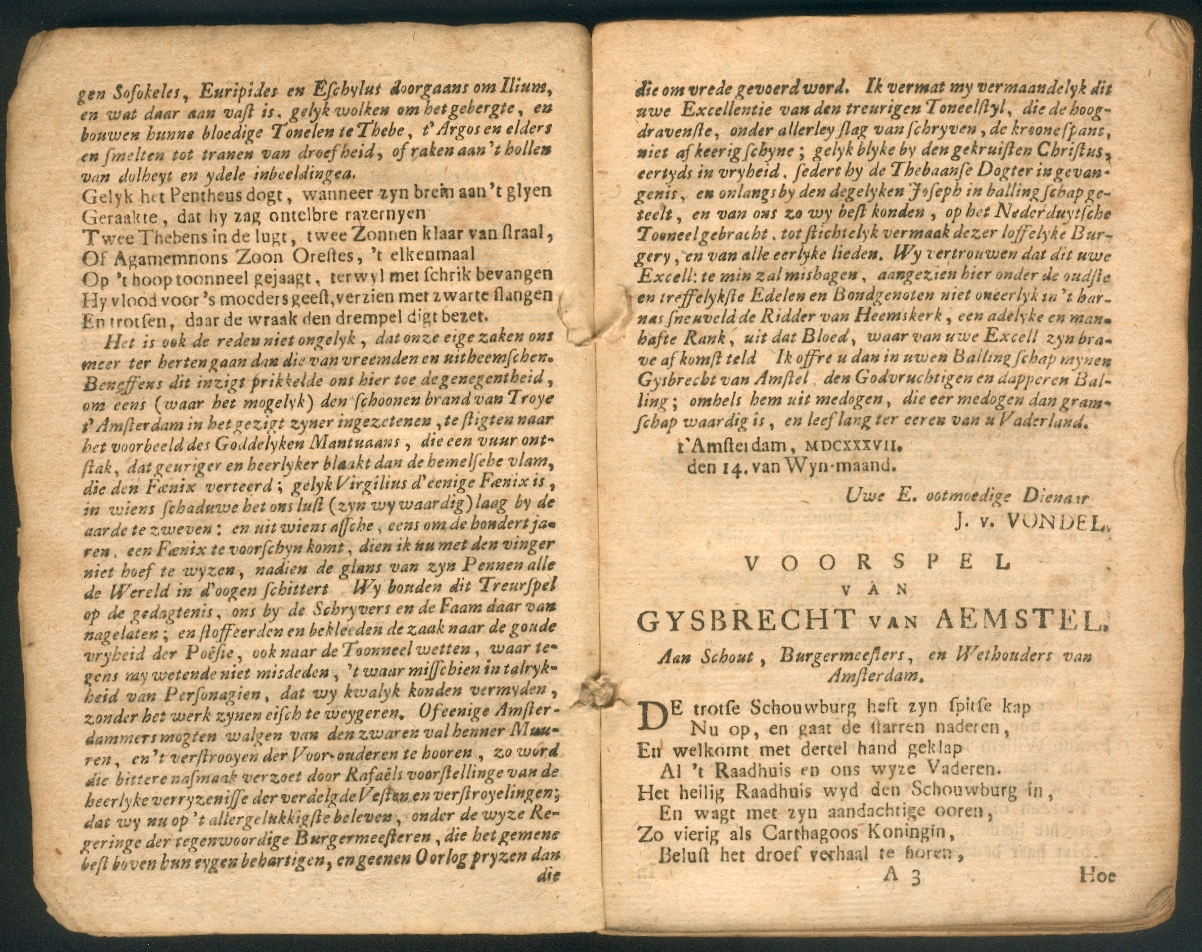 gen Sofokeles, Euripides en Eſchylus doorgaans om Ilium,
en wat daar aan vaſt is, gelyk wolken om het gebergte, en
bouwen hunne bloedige Tonelen te Thebe, t' Argos en elders
en ſmelten tot tranen van droefheid, of raken aan 't hollen
van dolheyt en ydele inbeeldingea.
Gelyk het Pentheus dogt, wanneer zyn brein aan 't glyen
Geraakte, dat hy zag ontelbre razernyen
Twee Thebens in de lugt, twee Zonnen klaar van ſtraal,
Of Agamemnons Zoon Oreſtes, 't elkenmaal
Op 't hoop toonneel gejaagt, terwyl met ſchrik bevangen
Hy vlood voor 's moeders geeſt, verzien met zwarte ſlangen
En trotſen, daar de wraak den drempel digt bezet.
Het is ook de reden niet ongelyk, dat onze eige zaken ons
meer ter herten gaan dan die van vreemden en uitheemſchen.
Beneffens dit inzigt prikkelde ons hier toe de genegentheid,
om eens (waar het mogelyk) den ſchoonen brand van Troye
t' Amſterdam in het gezigt zyner ingezetenen, te ſtigten naar
het voorbeeld des Goddelyken Mantuaans, die een vuur ont-
ſtak, dat geuriger en heerlyker blaakt dan de hemelſche vlam,
die den Fænix verteerd; gelyk Virgilius d'eenige Fænix is,
in wiens ſchaduwe het ons luſt (zyn wy waardig) laag by de
aarde te zweven: en uit wiens aſſche, eens om de hondert ja-
ren, een Fænix te voorſchyn komt, dien ik nu met den vinger
niet hoef te wyzen, nadien de glans van zyn Pennen alle
de Wereld in d'oogen ſchittert Wy houden dit Treurſpel
op de gedagtenis, ons by de Schryvers en de Faam daar van
nagelaten; en ſtoffeerden en bekleeden de zaak naar de goude
vryheid der Poëſie, ook naar de Toonneel wetten, waar te-
gens my wetende niet misdeden, 't waar miſſchien in talryk-
heid van Perſonagien, dat wy kwalyk konden vermyden,
zonder het werk zynen eiſch te weygeren. Of eenige Amſter-
dammers mogten walgen van den zwaren val henner Muu-
ren, en 't verſtrooyen der Voor-ouderen te hooren, zo word
die bittere naſmaak verzoet door Rafaëls voorſtellinge van de
heerlyke verryzeniſſe der verdelgde Veſten en verſtroyelingen;
dat wy nu op 't allergelukkigſte beleven, onder de wyze Re-
geringe der tegenwoordige Burgermeeſteren, die het gemene
beſt boven hun eygen behartigen, en geenen Oorlog pryzen dan
die
die om vrede gevoerd word. Ik vermat my vermaandelyk dit
uwe Excellentie van den treurigen Toneelſtyl, die de hoog-
dravenſte, onder allerley ſlag van ſchryven, de kroone ſpant,
niet afkeerig ſchyne; gelyk blyke by den gekruiſten Chriſtus,
eertyds in vryheid, ſedert by de Thebaanſe Dogter in gevan-
genis, en onlangs by den degelyken Joſeph in ballingſchap ge-
teelt, en van ons zo wy beſt konden, op het Nederduytſche
Tooneel gebracht, tot ſtichtelyk vermaak dezer loffelyke Bur-
gery, en van alle eerlyke lieden. Wy vertrouwen dat dit uwe
Excell: te min zal mishagen, aangezien hier onder de oudſte
en treffelykſte Edelen en Bondgenoten niet oneerlyk in 't har-
nas ſneuveld de Ridder van Heemskerk, een adelyke en man-
hafte Rank, uit dat Bloed, waar van uwe Excell zyn bra-
ve afkomſt teld Ik offre u dan in uwen Ballingſchap mynen
Gysbrecht van Amſtel, den Godvruchtigen en dapperen Bal-
ling; omhels hem uit medogen, die eer medogen dan gram-
ſchap waardig is, en leef lang ter eeren van u Vaderland.
t'Amſterdam, MDCXXXVII.
den 14. van Wyn-maand.
Uwe E. ootmoedige Dienaar
J. v. VONDEL.
VOORSPEL
VAN
GYSBRECHT VAN AEMSTEL.
Aan Schout, Burgermeeſters, en Wethouders van
Amſterdam.
DE trotſe Schouwburg heft zyn ſpitſe kap
Nu op, en gaat de ſtarren naderen,
En welkomt met dertel hand geklap
Al 't Raadhuis en ons wyze Vaderen.
Het heilig Raadhuis wyd den Schouwburg in,
En wagt met zyn aandachtige ooren,
Zo vierig als Carthagoos Koningin,
Beluſt het droef verhaal te horen,
A 3 Hoe